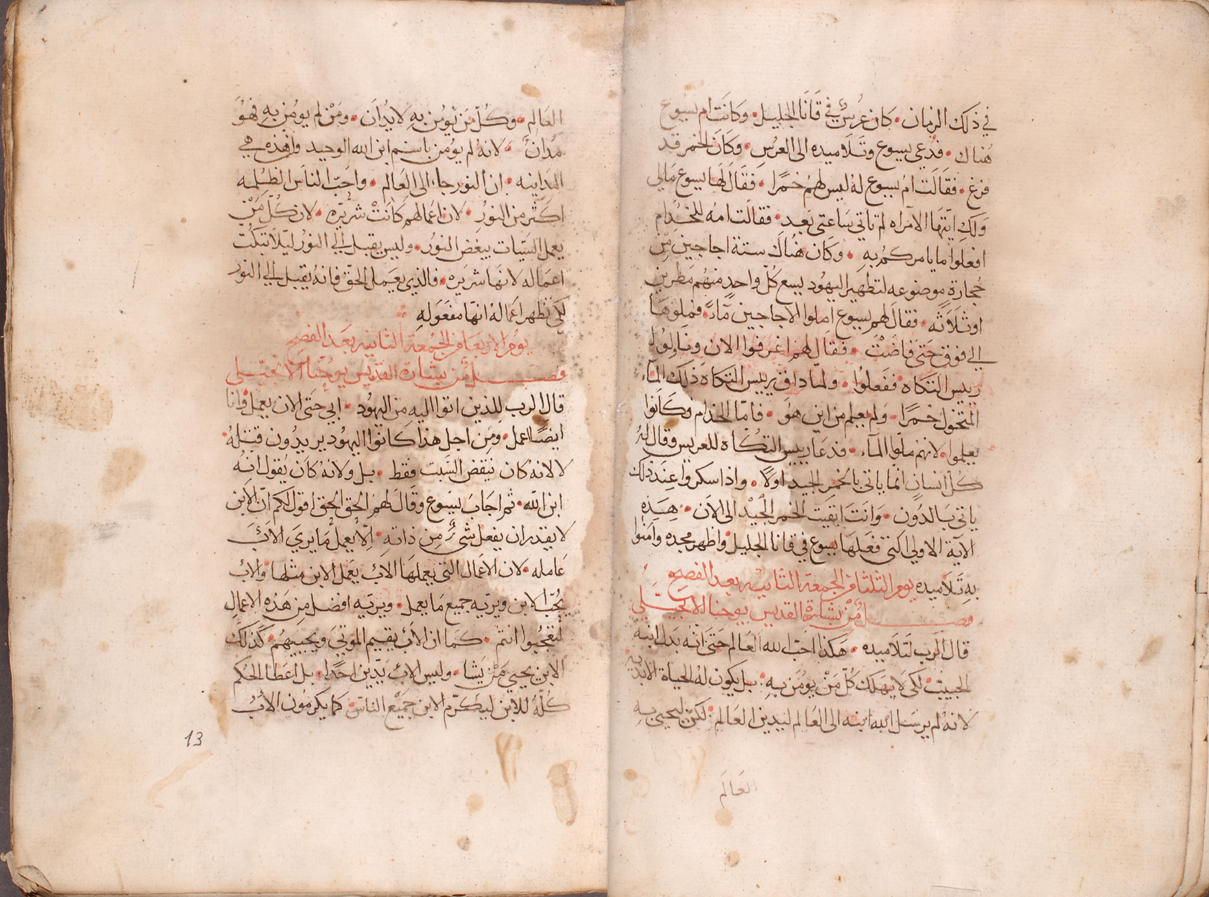 في ذلك الزمان • كان عرس في قانا الجليل • وكانت ام يسوع
هناك • فدعي يسوع وتلاميذه الى العرس • وكان الخمر قد
فرغ • فقالت ام يسوع له ليس لهم خمرا • فقال لها يسوع مالي
ولك ايتها الامراه لم تاتي ساعتي بعد • فقالت امه للخدام
افعلوا ما يامركم به • وكان هناك ستة اجاجين من
حجارة موضوعه لتطهير اليهود يسع كل واحد منهم مطرين
او ثلاثه • فقال لهم يسوع املوا الاجاجين مآء • فملوها
الي فوق حتى فاضت • فقال لهم اغرفوا الان وناولوا
رييس التكاه • ففعلوا • ولما داق رييس التكاه ذلك المآء
المتحول خمرا • ولم يعلم من اين هو • فاما الخدام وكانوا
يعلموا • لانهم ملوا المآء • فدعا رييس التكاة للعريس وقال له
كل انسان انما ياتي بالخمر الجيد اولا • واذا سكروا عند ذلك
ياتي بالدون • وانت ابقيت الخمر الجيد الى الان • هذه
الاية الاولي التي فعلها يسوع في قانا الجليل • واظهر مجده وامنوا
به تلاميذه يوم الثلثا من الجمعة الثانيه بعد الفصح
فصل من بشارة القديس يوحنا الانجيلي
قال الرب لتلاميذه • هكذا احب الله العالم حتى انه بذل ابنه
الحبيب • لكي لا يهلك كل من يومن به • بل يكون له الحياة الابديه
لانه لم يرسل الله ابنه الى العالم ليدين العالم • لكن ليحيي به
العالم
العالم • وكل من يومن به لا يدان • ومن لم يومن به فهو
مدان • لانه لم يومن باسم ابن الله الوحيد وهذه هي
المداينه • ان النور جا الى العالم • واحب الناس الظلمه
اكثر من النور • لان اعمالهم كانت شريره • لان كل من
يعمل السيات يبغض النور • وليس يقبل الي النور ليلا تبكت
اعماله لانها شريره • والذي يعمل الحق فانه يقبل الي النور
لكي تظهر اعماله انها مفعوله •
يوم الاربعا من الجمعة الثانيه بعد الفصح
فصل من بشارة القديس يوحنا الانجيلي
قال الرب للذين اتوا اليه من اليهود • ابي حتى الان يعمل وانا
ايضا اعمل • ومن اجل هذا كانوا اليهود يريدون قتله •
لا لانه كان ينقض السبت فقط • بل ولانه كان يقول انه
ابن الله • ثم اجاب يسوع وقال لهم الحق الحق اقول لكم ان الابن
لا يقدر ان يفعل شي من داته • الا يعمل ما يري الاب
عامله • لان الاعمال التي يعملها الاب يعمل الابن مثلها • والاب
يحب الابن ويريه جميع ما يعمل • ويريه افضل من هذه الاعمال
لتعجبوا انتم • كما ان الاب يقيم الموتي ويحييهم • كذلك
الابن يحيي من يشا • وليس الاب يدين احدا • بل اعطا الحكم
كله للابن ليكرم الابن جميع الناس كما يكرمون الاب
13